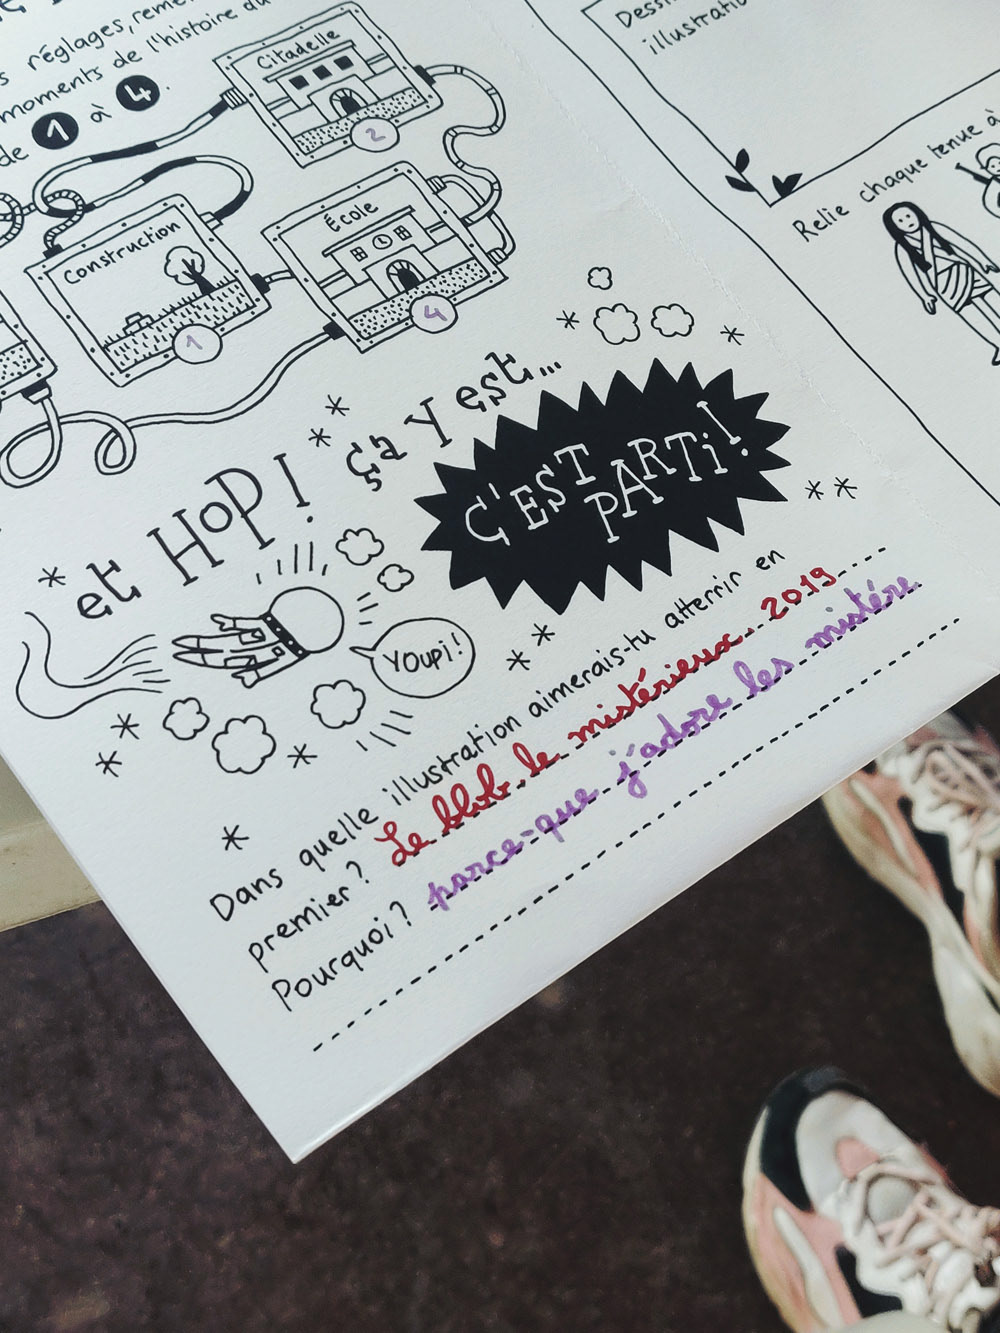 réglages, reme
moments de l'histoire du
de 1 à 4.
Citadelle
2
École
4
Construction
1
et HOP!
ça y est...
C'EST
PARTI!
YOUPI!
Dans quelle illustration aimerais-tu atterrir en
premier? Le blob le mistérieux 2019
Pourquoi? parce-que j'adore les mistére
Dessi
illustratio
Relie chaque tenue à